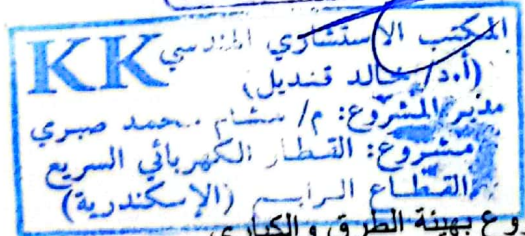 KK
المكتب الاستشاري الهندسي
(أ.د/ خالد قنديل)
مدير المشروع: م/ هشام محمد صبري
مشروع: القطار الكهربائي السريع
القطاع الرابع (الإسكندرية)
بهيئة الطرق والكباري